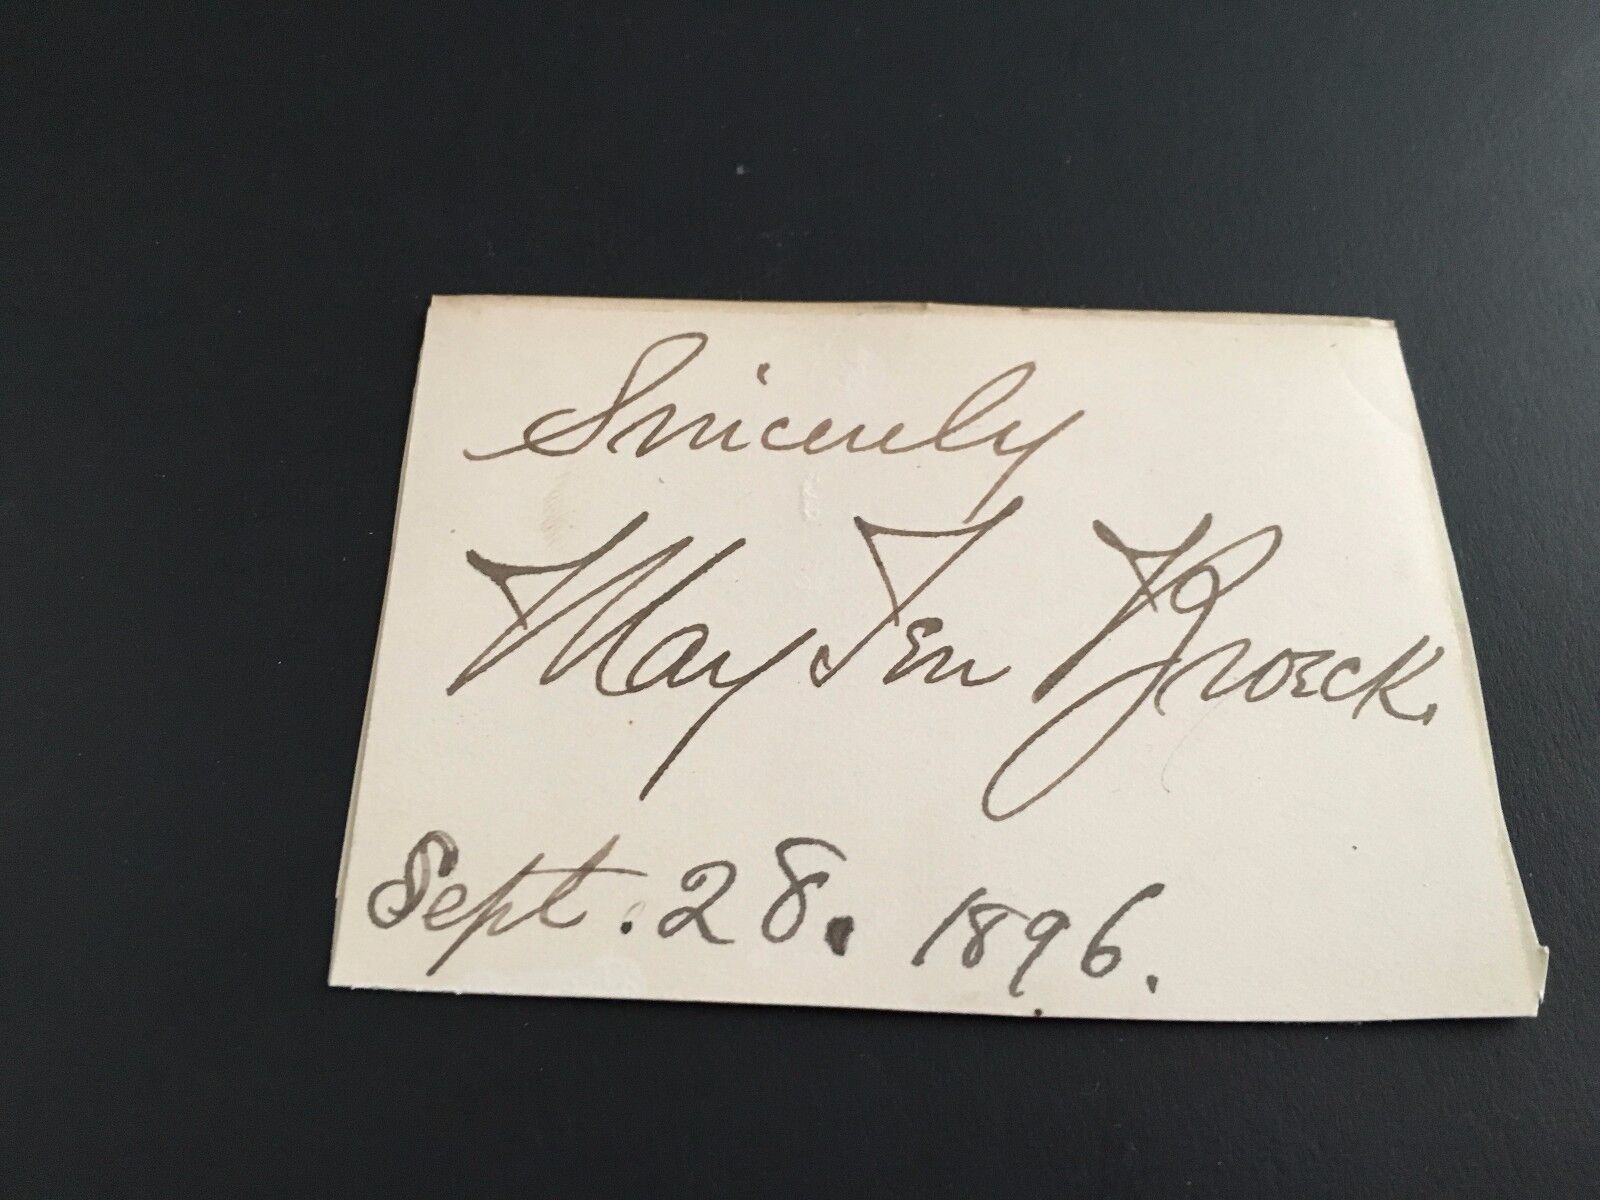 Sincerely
May Ten Broeck.
Sept. 28. 1896.